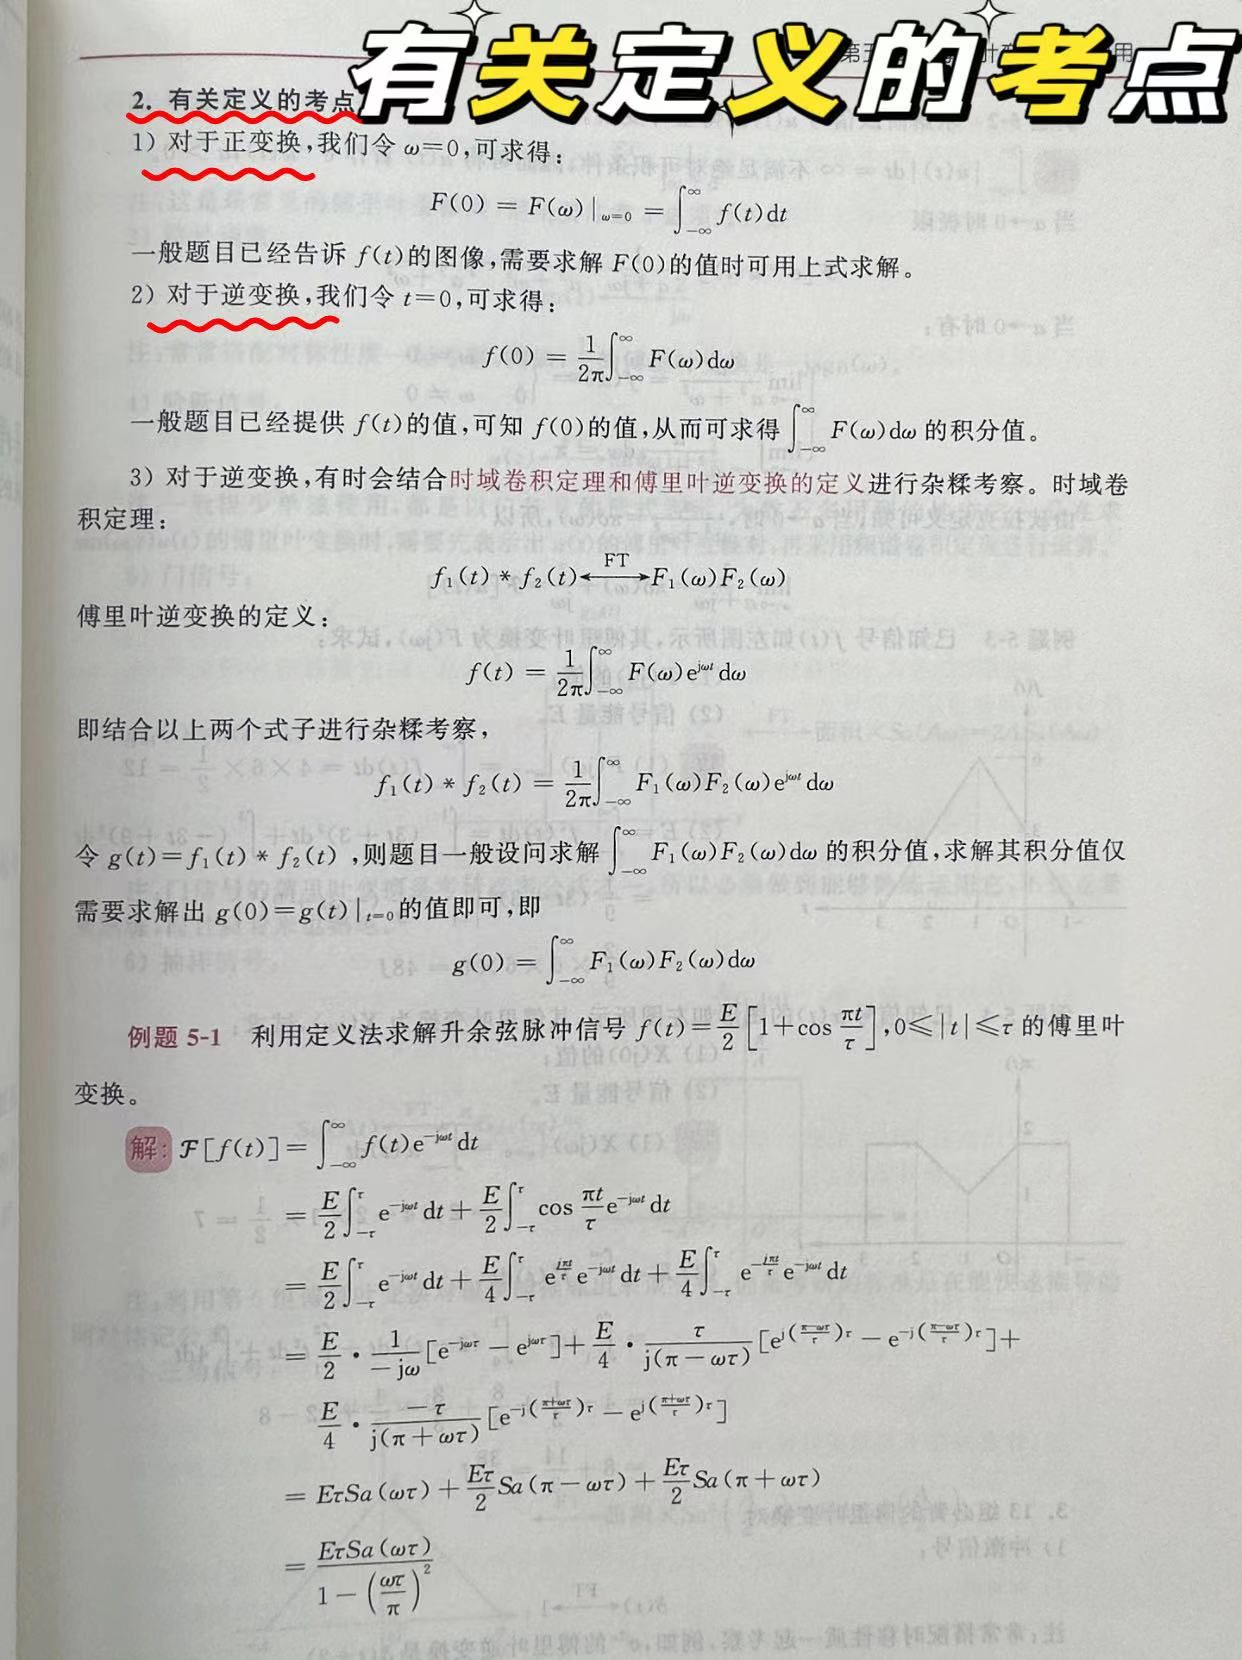 有关定义的考点
2. 有关定义的考点
1) 对于正变换,我们令 ω=0,可求得:
F(0) = F(ω)|ω=0 = ∫_{-∞}^{∞} f(t)dt
一般题目已经告诉 f(t)的图像,需要求解 F(0)的值时可用上式求解。
2) 对于逆变换,我们令 t=0,可求得:
f(0) = \frac{1}{2π}∫_{-∞}^{∞} F(ω)dω
一般题目已经提供 f(t)的值,可知 f(0)的值,从而可求得∫_{-∞}^{∞} F(ω)dω 的积分值。
3) 对于逆变换,有时会结合时域卷积定理和傅里叶逆变换的定义进行杂糅考察。时域卷
积定理:
f₁(t) * f₂(t) ←FT→ F₁(ω)F₂(ω)
傅里叶逆变换的定义:
f(t) = \frac{1}{2π}∫_{-∞}^{∞} F(ω)e^{jωt} dω
即结合以上两个式子进行杂糅考察,
f₁(t) * f₂(t) = \frac{1}{2π}∫_{-∞}^{∞} F₁(ω)F₂(ω)e^{jωt} dω
令 g(t)=f₁(t) * f₂(t) ,则题目一般设问求解∫_{-∞}^{∞} F₁(ω)F₂(ω)dω 的积分值,求解其积分值仅
需要求解出 g(0)=g(t)|t=0的值即可,即
g(0) = ∫_{-∞}^{∞} F₁(ω)F₂(ω)dω
例题 5-1 利用定义法求解升余弦脉冲信号 f(t)=\frac{E}{2}[1+cos \frac{πt}{τ}],0≤|t|≤τ 的傅里叶
变换。
解: ℱ[f(t)]=∫_{-∞}^{∞} f(t)e^{-jωt} dt
= \frac{E}{2}∫_{-τ}^{τ} e^{-jωt} dt + \frac{E}{2}∫_{-τ}^{τ} cos \frac{πt}{τ} e^{-jωt} dt
= \frac{E}{2}∫_{-τ}^{τ} e^{-jωt} dt + \frac{E}{4}∫_{-τ}^{τ} e^{\frac{jπt}{τ}} e^{-jωt} dt + \frac{E}{4}∫_{-τ}^{τ} e^{-\frac{jπt}{τ}} e^{-jωt} dt
= \frac{E}{2} · \frac{1}{-jω}[e^{-jωτ} - e^{jωτ}]+ \frac{E}{4} · \frac{τ}{j(π-ωτ)}[e^{j(\frac{π-ωτ}{τ})τ} - e^{-j(\frac{π-ωτ}{τ})τ}]+
\frac{E}{4} · \frac{-τ}{j(π+ωτ)}[e^{-j(\frac{π+ωτ}{τ})τ} - e^{j(\frac{π+ωτ}{τ})τ}]
= EτSa(ωτ) + \frac{Eτ}{2}Sa(π-ωτ) + \frac{Eτ}{2}Sa(π+ωτ)
= \frac{EτSa(ωτ)}{1-(\frac{ωτ}{π})^2}